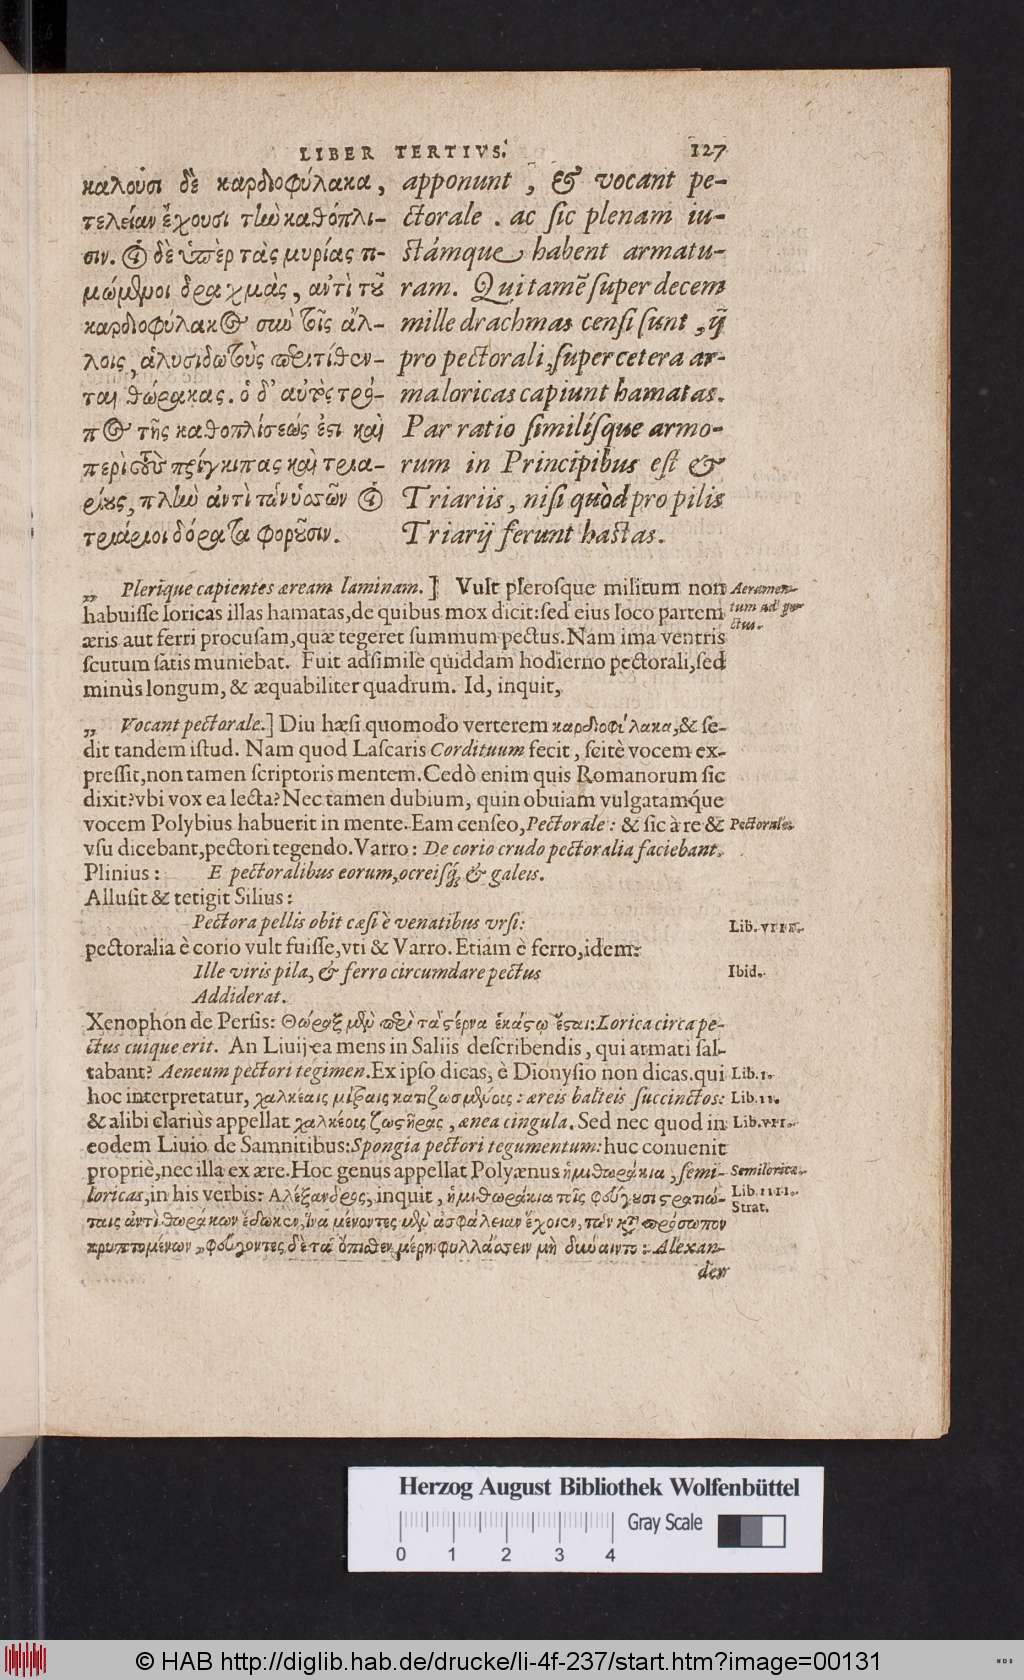 LIBER TERTIVS. 127
καλοῦσι δὲ καρδιοφύλακα,
τελείαν ἔχουσι τὴν καθόπλι-
σιν. οἱ δὲ ὑπὲρ τὰς μυρίας τι-
μώμενοι δραχμὰς, ἀντὶ τοῦ
καρδιοφύλακος σὺν τοῖς ἄλ-
λοις, ἁλυσιδωτοὺς περιτίθεν-
ται θώρακας. ὁ δ' αὐτὸς τρό-
πος τῆς καθοπλίσεώς ἐστι καὶ
περὶ τοὺς πρίγκιπας καὶ τρια-
ρίους, πλὴν ἀντὶ τῶν ὑσσῶν οἱ
τριάριοι δόρατα φοροῦσιν.
apponunt, & vocant pe-
ctorale. ac sic plenam iu-
stámque habent armatu-
ram. Qui tamẽ super decem
mille drachmas censi sunt, ij
pro pectorali, super cetera ar-
ma loricas capiunt hamatas.
Par ratio similísque armo-
rum in Principibus est &
Triariis, nisi quòd pro pilis
Triarij ferunt hastas.
„ Plerique capientes æream laminam.] Vult plerosque militum non
habuisse loricas illas hamatas, de quibus mox dicit: sed eius loco partem
æris aut ferri procusam, quæ tegeret summum pectus. Nam ima ventris
scutum satis muniebat. Fuit adsimile quiddam hodierno pectorali, sed
minùs longum, & æquabiliter quadrum. Id, inquit,
Aeramen-
tum ad pe-
ctus.
„ Vocant pectorale.] Diu hæsi quomodo verterem καρδιοφύλακα, & se-
dit tandem istud. Nam quod Lascaris Cordituum fecit, scitè vocem ex-
pressit, non tamen scriptoris mentem. Cedò enim quis Romanorum sic
dixit? vbi vox ea lecta? Nec tamen dubium, quin obuiam vulgatamq́ue
vocem Polybius habuerit in mente. Eam censeo, Pectorale: & sic à re &
vsu dicebant, pectori tegendo. Varro: De corio crudo pectoralia faciebant.
Pectorale.
Plinius: E pectoralibus eorum, ocreisq́; & galeis.
Allusit & tetigit Silius:
Pectora pellis obit cæsi è venatibus vrsi:
Lib. VIII.
pectoralia è corio vult fuisse, vti & Varro. Etiam è ferro, idem:
Ille viris pila, & ferro circumdare pectus
Ibid.
Addiderat.
Xenophon de Persis: Θώραξ μὲν περὶ τὰ στέρνα ἑκάστῳ ἔσται: Lorica circa pe-
ctus cuique erit. An Liuij ea mens in Saliis describendis, qui armati sal-
tabant? Aeneum pectori tegimen. Ex ipso dicas, è Dionysio non dicas. qui
Lib. I.
hoc interpretatur, χαλκέαις μίτραις κατεζωσμένοις: æreis balteis succinctos:
Lib. II.
& alibi clariùs appellat χαλκέοις ζωστῆρας, ænea cingula. Sed nec quod in
Lib. VII.
eodem Liuio de Samnitibus: Spongia pectori tegumentum: huc conuenit
propriè, nec illa ex ære. Hoc genus appellat Polyænus ἡμιθωράκια, semi-
Semilorica.
loricas, in his verbis: Αλέξανδρος, inquit, ἡμιθωράκια τοῖς φεύγουσι στρατιώ-
Lib. IIII.
Strat.
ταις ἀντὶ θωράκων ἔδωκεν, ἵνα μένοντες μὲν ἀσφάλειαν ἔχοιεν, τῶν κατὰ πρόσωπον
κρυπτομένων, φεύγοντες δὲ τὰ ὄπισθεν μέρη φυλλάσσειν μὴ δύναιντο: Alexan-
der
Herzog August Bibliothek Wolfenbüttel
Gray Scale
0 1 2 3 4
© HAB http://diglib.hab.de/drucke/li-4f-237/start.htm?image=00131